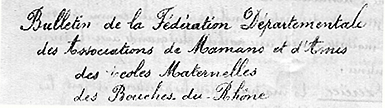 Bulletin de la Fédération Départementale
des Associations de Mamans et d'Amis
des écoles Maternelles
des Bouches-du-Rhône